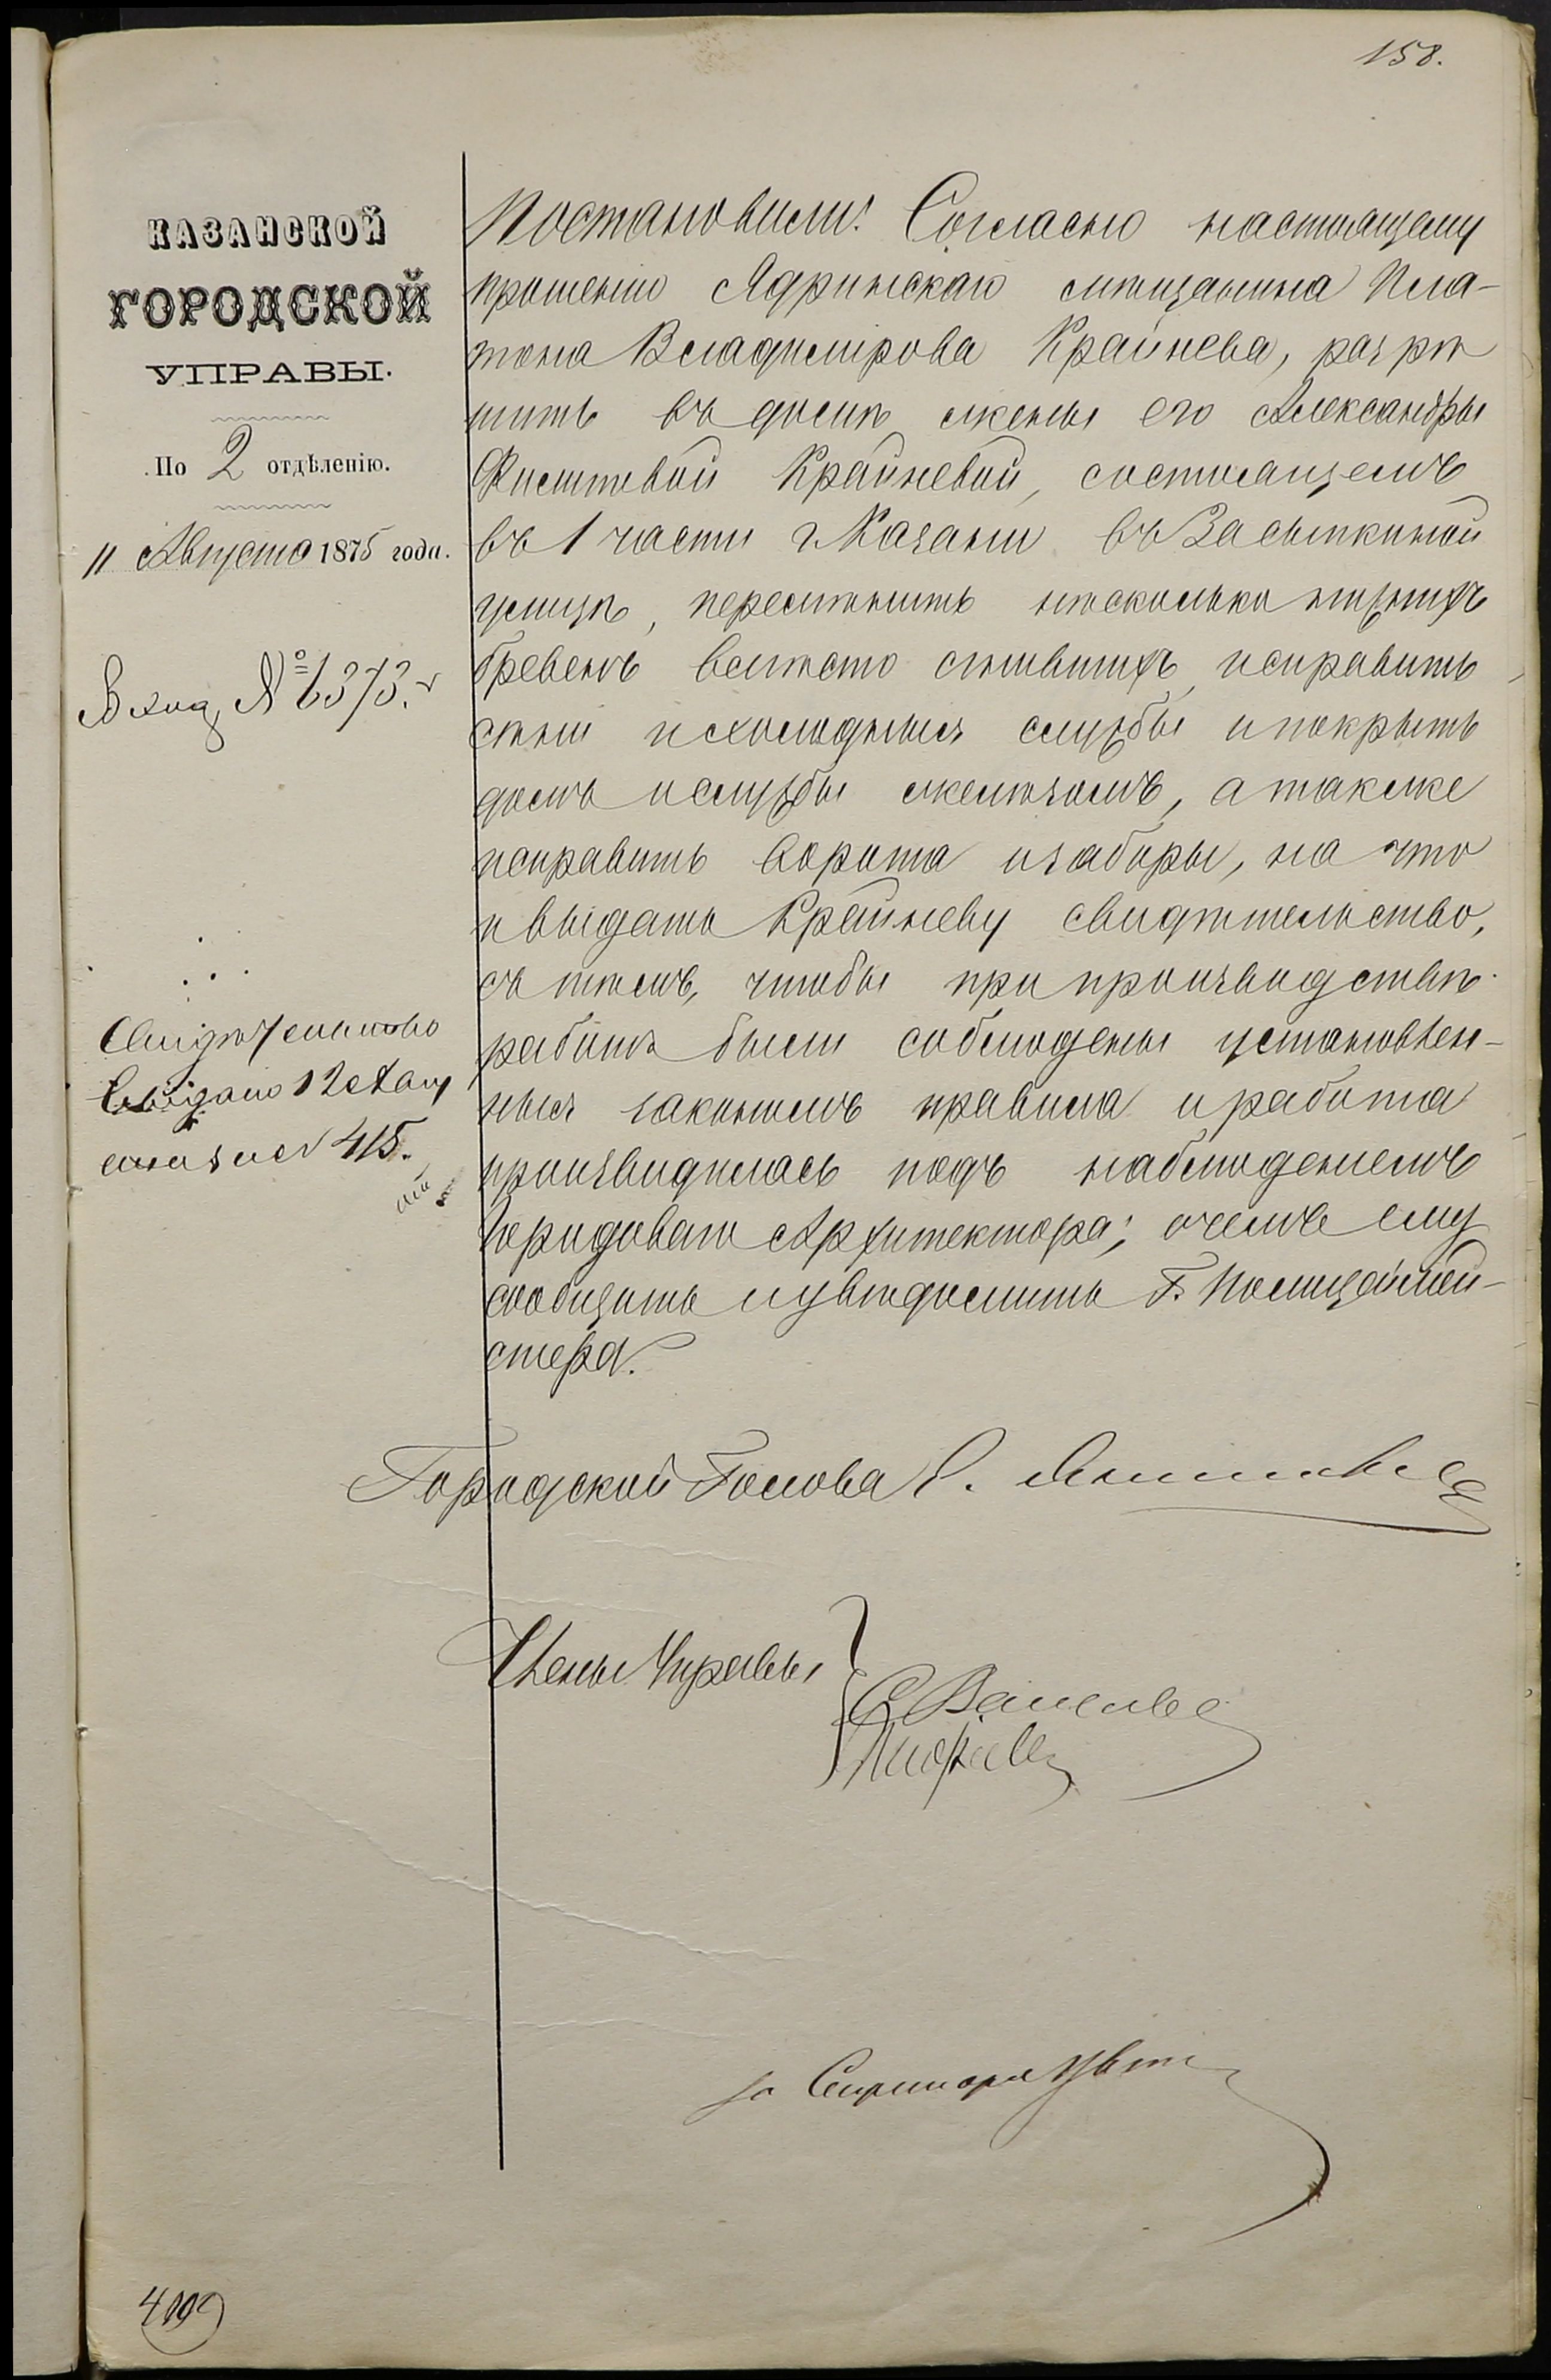 158.
КАЗАНСКОЙ
ГОРОДСКОЙ
УПРАВЫ.
По 2 отдѣленію.
11 Августа 1875 года.
Вход. № 6373.
Свидѣтельство
выдано 12 Авгу
ста за № 415.
Постановили: Согласно настоящему
прошенію Ядринскаго мѣщанина Пла-
тона Владимірова Крайнева, разрѣ
шить въ домѣ жены его Александры
Крайневой, состоящемъ
въ 1 части г. Казани въ Засыпкиной
улицѣ, перемѣнить нѣсколько нижнихъ
бревенъ вмѣсто сгнившихъ, исправить
сѣни и холодныя службы и покрыть
домъ и службы желѣзомъ, а также
исправить ворота и заборы, на что
и выдать Крайневу свидѣтельство,
съ тѣмъ, чтобы при производствѣ
работъ были соблюдены установлен-
ныя закономъ правила и работа
производилась подъ наблюденіемъ
Городоваго Архитектора; о чемъ ему
сообщить и увѣдомить Г. Полицеймей-
стера.
Городской Голова Е.
Члены Управы
за Секретаря